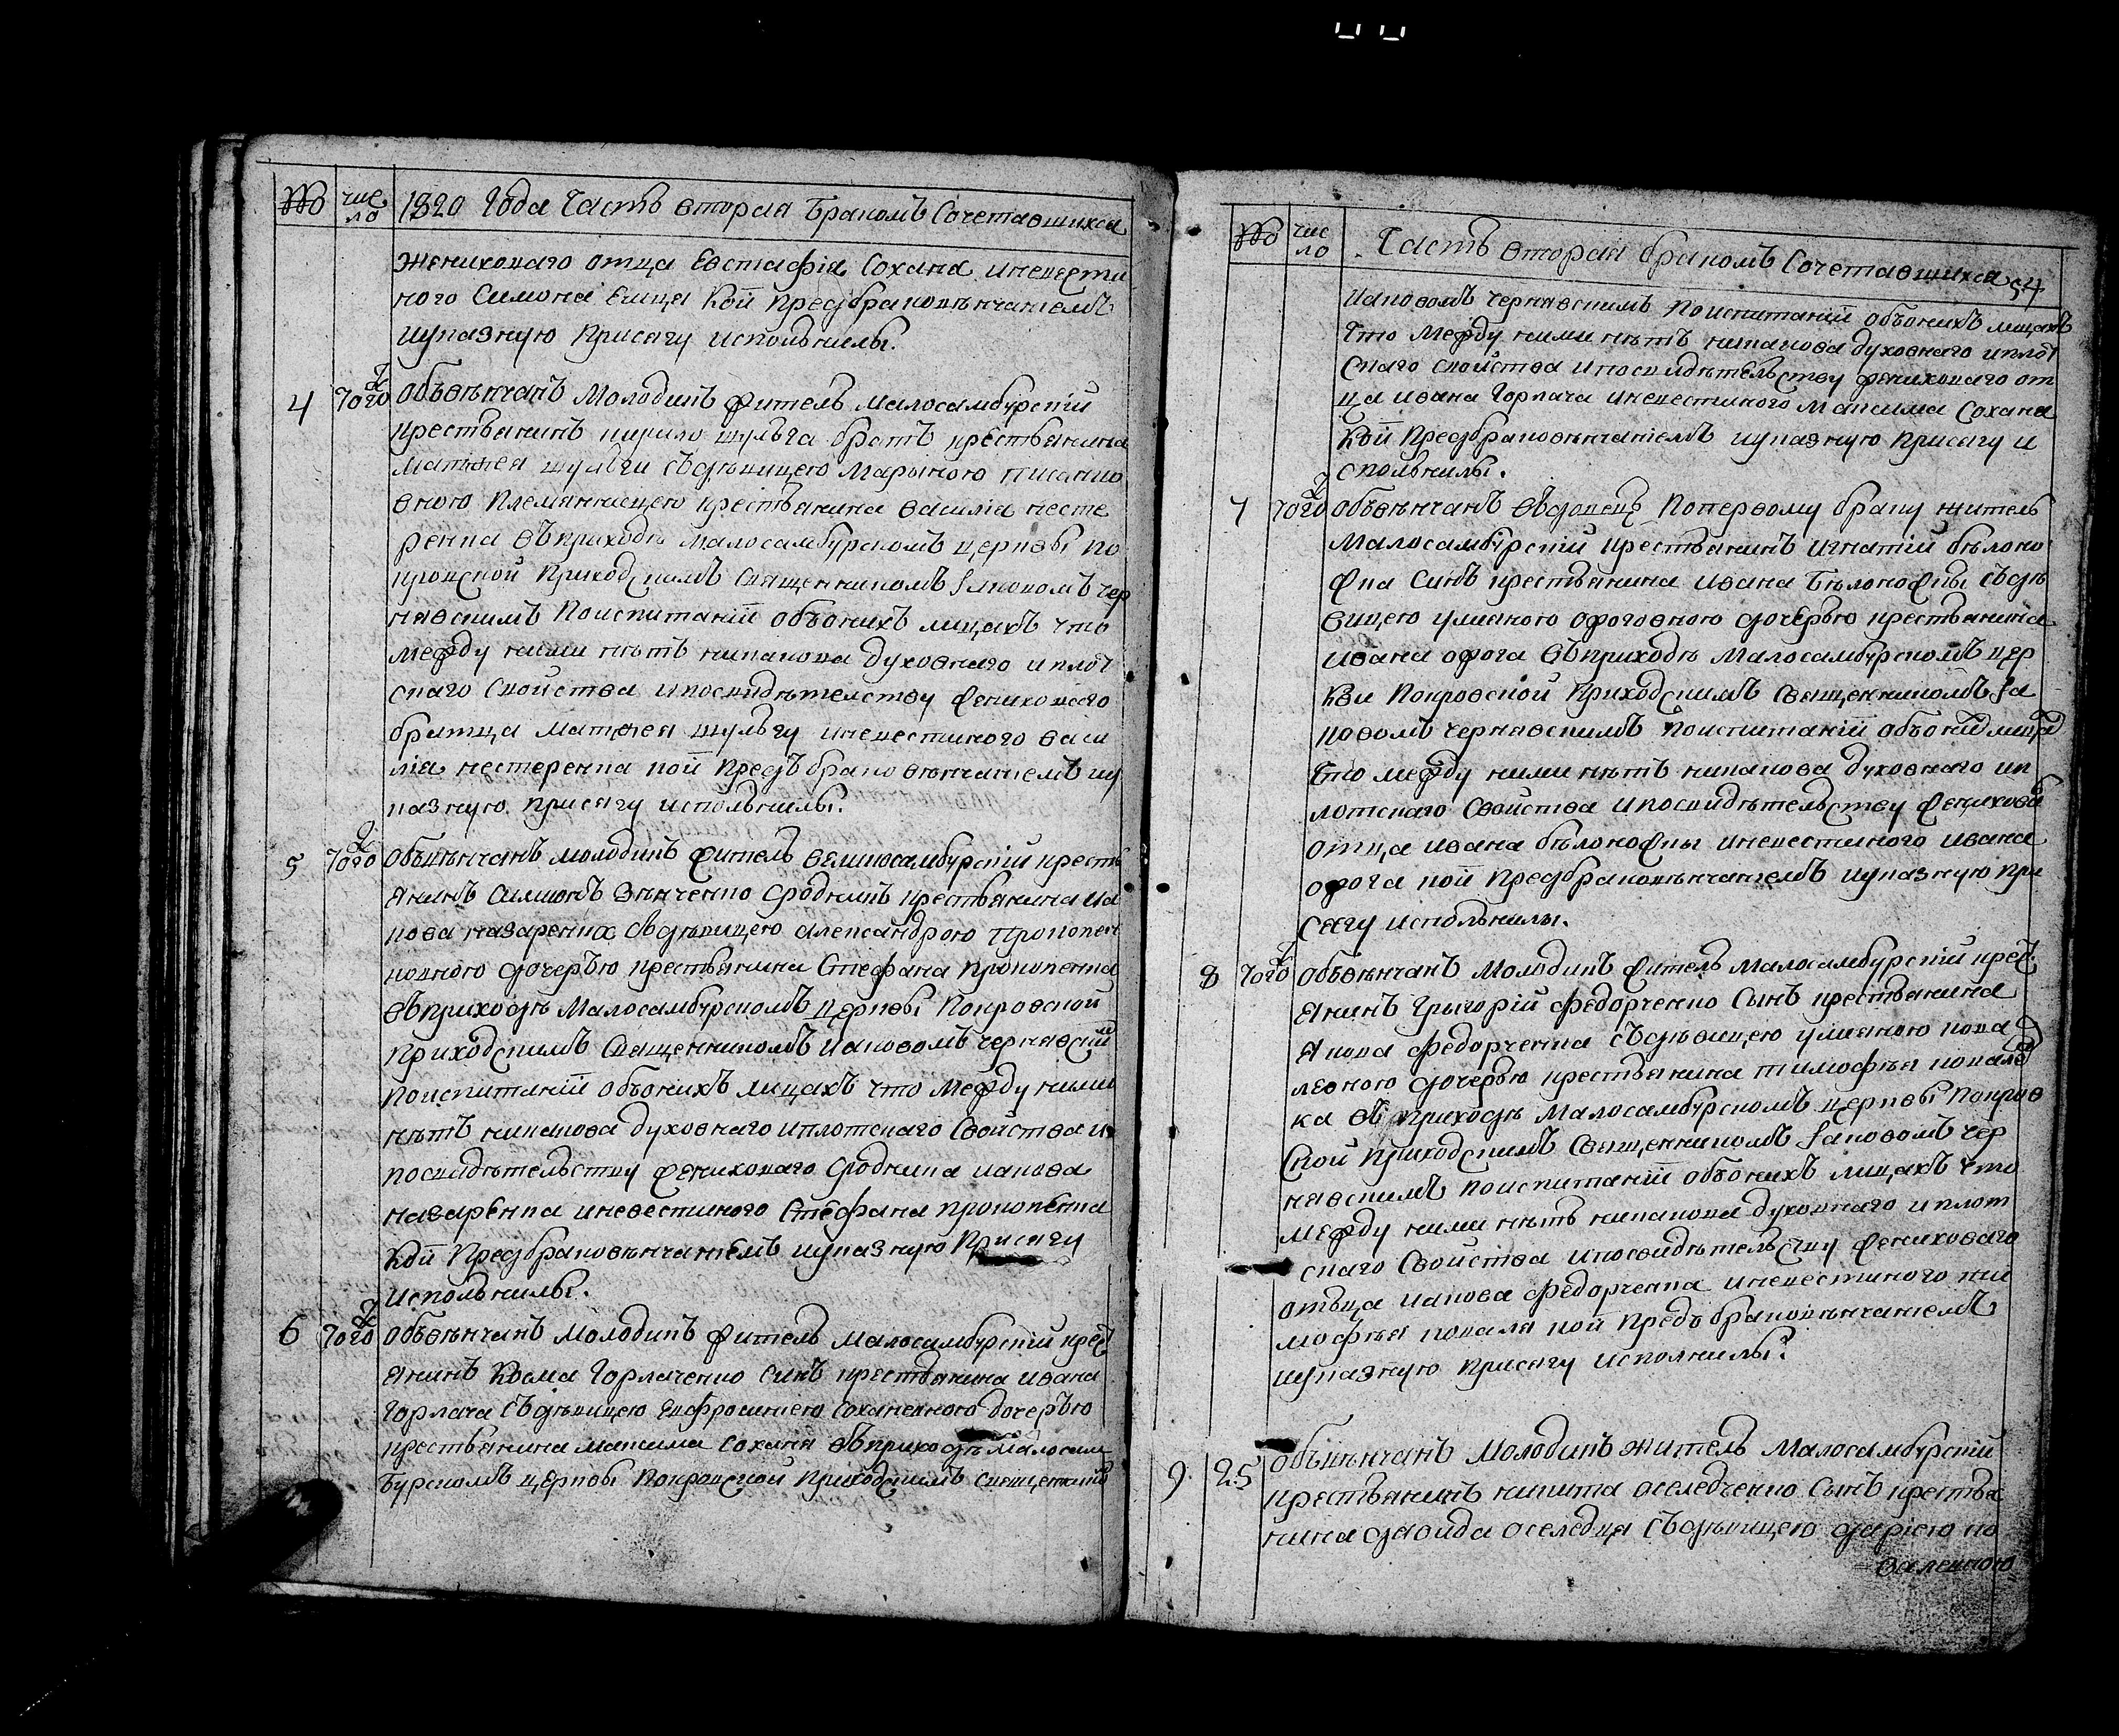 № число 1820 года Часть вторая бракомъ Сочетавшихся
женихошаго отца Евстафія Сохана иневести
ного Симона Емца кой предбраковѣнчаніемъ
иуказную присягу исполънилы.
4 того Объвѣнчанъ Молодикъ житель малосамбурскій
крестьянинъ кирило шульга братъ крестьянина
матѳея шульги съдѣвицею Марыною
вною Племянницею крестьянина василія несте
ренка въприходѣ малосамбурскомъ церквы по
кровской приходскимъ священникомъ Іяковомъ чер
нявскимъ Поиспитаніи объонихъ лицахъ что
между ними нѣтъ никакова духовнаго иплот
скаго свойства ипосвидѣтелству жениховаго
братца матѳея шульгу иневестиного васи
лія нестеренка кой предъбраковѣнчаніемъ иу
казную присягу исполънилы.
5 того объвѣнчанъ молодикъ житель великосамбурскій кресть
янинъ Симионъ Зѣнченко сродникъ крестьянина иа
кова назаренка съдѣвицею александрою прокопен
ковною дочерью крестьянина Стефана прокопенка
въприходѣ малосамбурскомъ церквы покровской
приходскимъ священникомъ иаковомъ чернявским
поиспитаніи объонихъ лицахъ что между ними
нѣтъ никакова духовнаго иплотскаго свойства и
посвидѣтельству женихошаго сродника иакова
назаренка иневестиного Стефана прокопенка
кой предбраковѣнчаніемъ иуказную присягу
исполънилы.
6 того объвѣнчанъ молодикъ житель малосамбурскій крест
янинъ Козма Горлаченко синъ крестьянина ивана
Горлача съдѣвицею ефросиніею соханенною дочерью
крестьянина максима сохана въприходѣ малосам
бурскомъ церквы покровской приходскимъ священнико
№ число Часть вторая бракомъ Сочетавшихся 54
иаковомъ чернявскимъ Поиспитаніи объонихъ лицахъ
что между ними нѣтъ никакова духовнаго иплот
скаго свойства ипосвидѣтельству женихошаго от
ца ивана Горлача иневестиного максима Сохана
кой предбраковѣнчаніемъ иуказную присягу и
сполънилы.
7 того объвѣнчанъ вдовецъ Поперевому браку житель
малосамбурскій крестьянинъ игнатій бѣлоно
жка синъ крестьянина ивана Бѣлоножкы съдѣ
вицею улияною ожоговною дочерью крестьянина
ивана ожога въприходѣ малосамбурскомъ цер
кви покровской приходскимъ священникомъ Іа
ковомъ чернявскимъ поиспитаніи объоних лицах
что между ними нѣтъ никакова духовнаго ип
лотскаго свойства ипосвидѣтельству женихова
отца ивана бѣлоножкы иневестиного ивана
ожога кой предбраковѣнчаніемъ иуказную при
сягу исполънилы.
8 того объвѣнчанъ молодикъ житель малосамбурскій крест
янинъ Григорій федорченко Сынъ крестьянина
якова федорченка съдѣвицею улияною кова
левною дочерью крестьянина тимофея ковален
ка въ приходѣ малосамбурскомъ церквы покров
ской приходскимъ священникомъ Іаковомъ чер
нявскимъ поиспитаніи объонихъ лицахъ что
между ними нѣтъ никакова духовнаго иплот
скаго свойства ипосвидѣтельству женихошаго
отьца иакова федорченка иневестиного ти
мофея коваля кой предъ браковѣнчаніемъ
иуказную присягу исполнилы.
9 25 Объвѣнчанъ молодикъ житель малосамбурскій
крестьянинъ никита оселедченко Сынъ крестья
нина давида оселедця съдѣвицею даріею ко
валевною